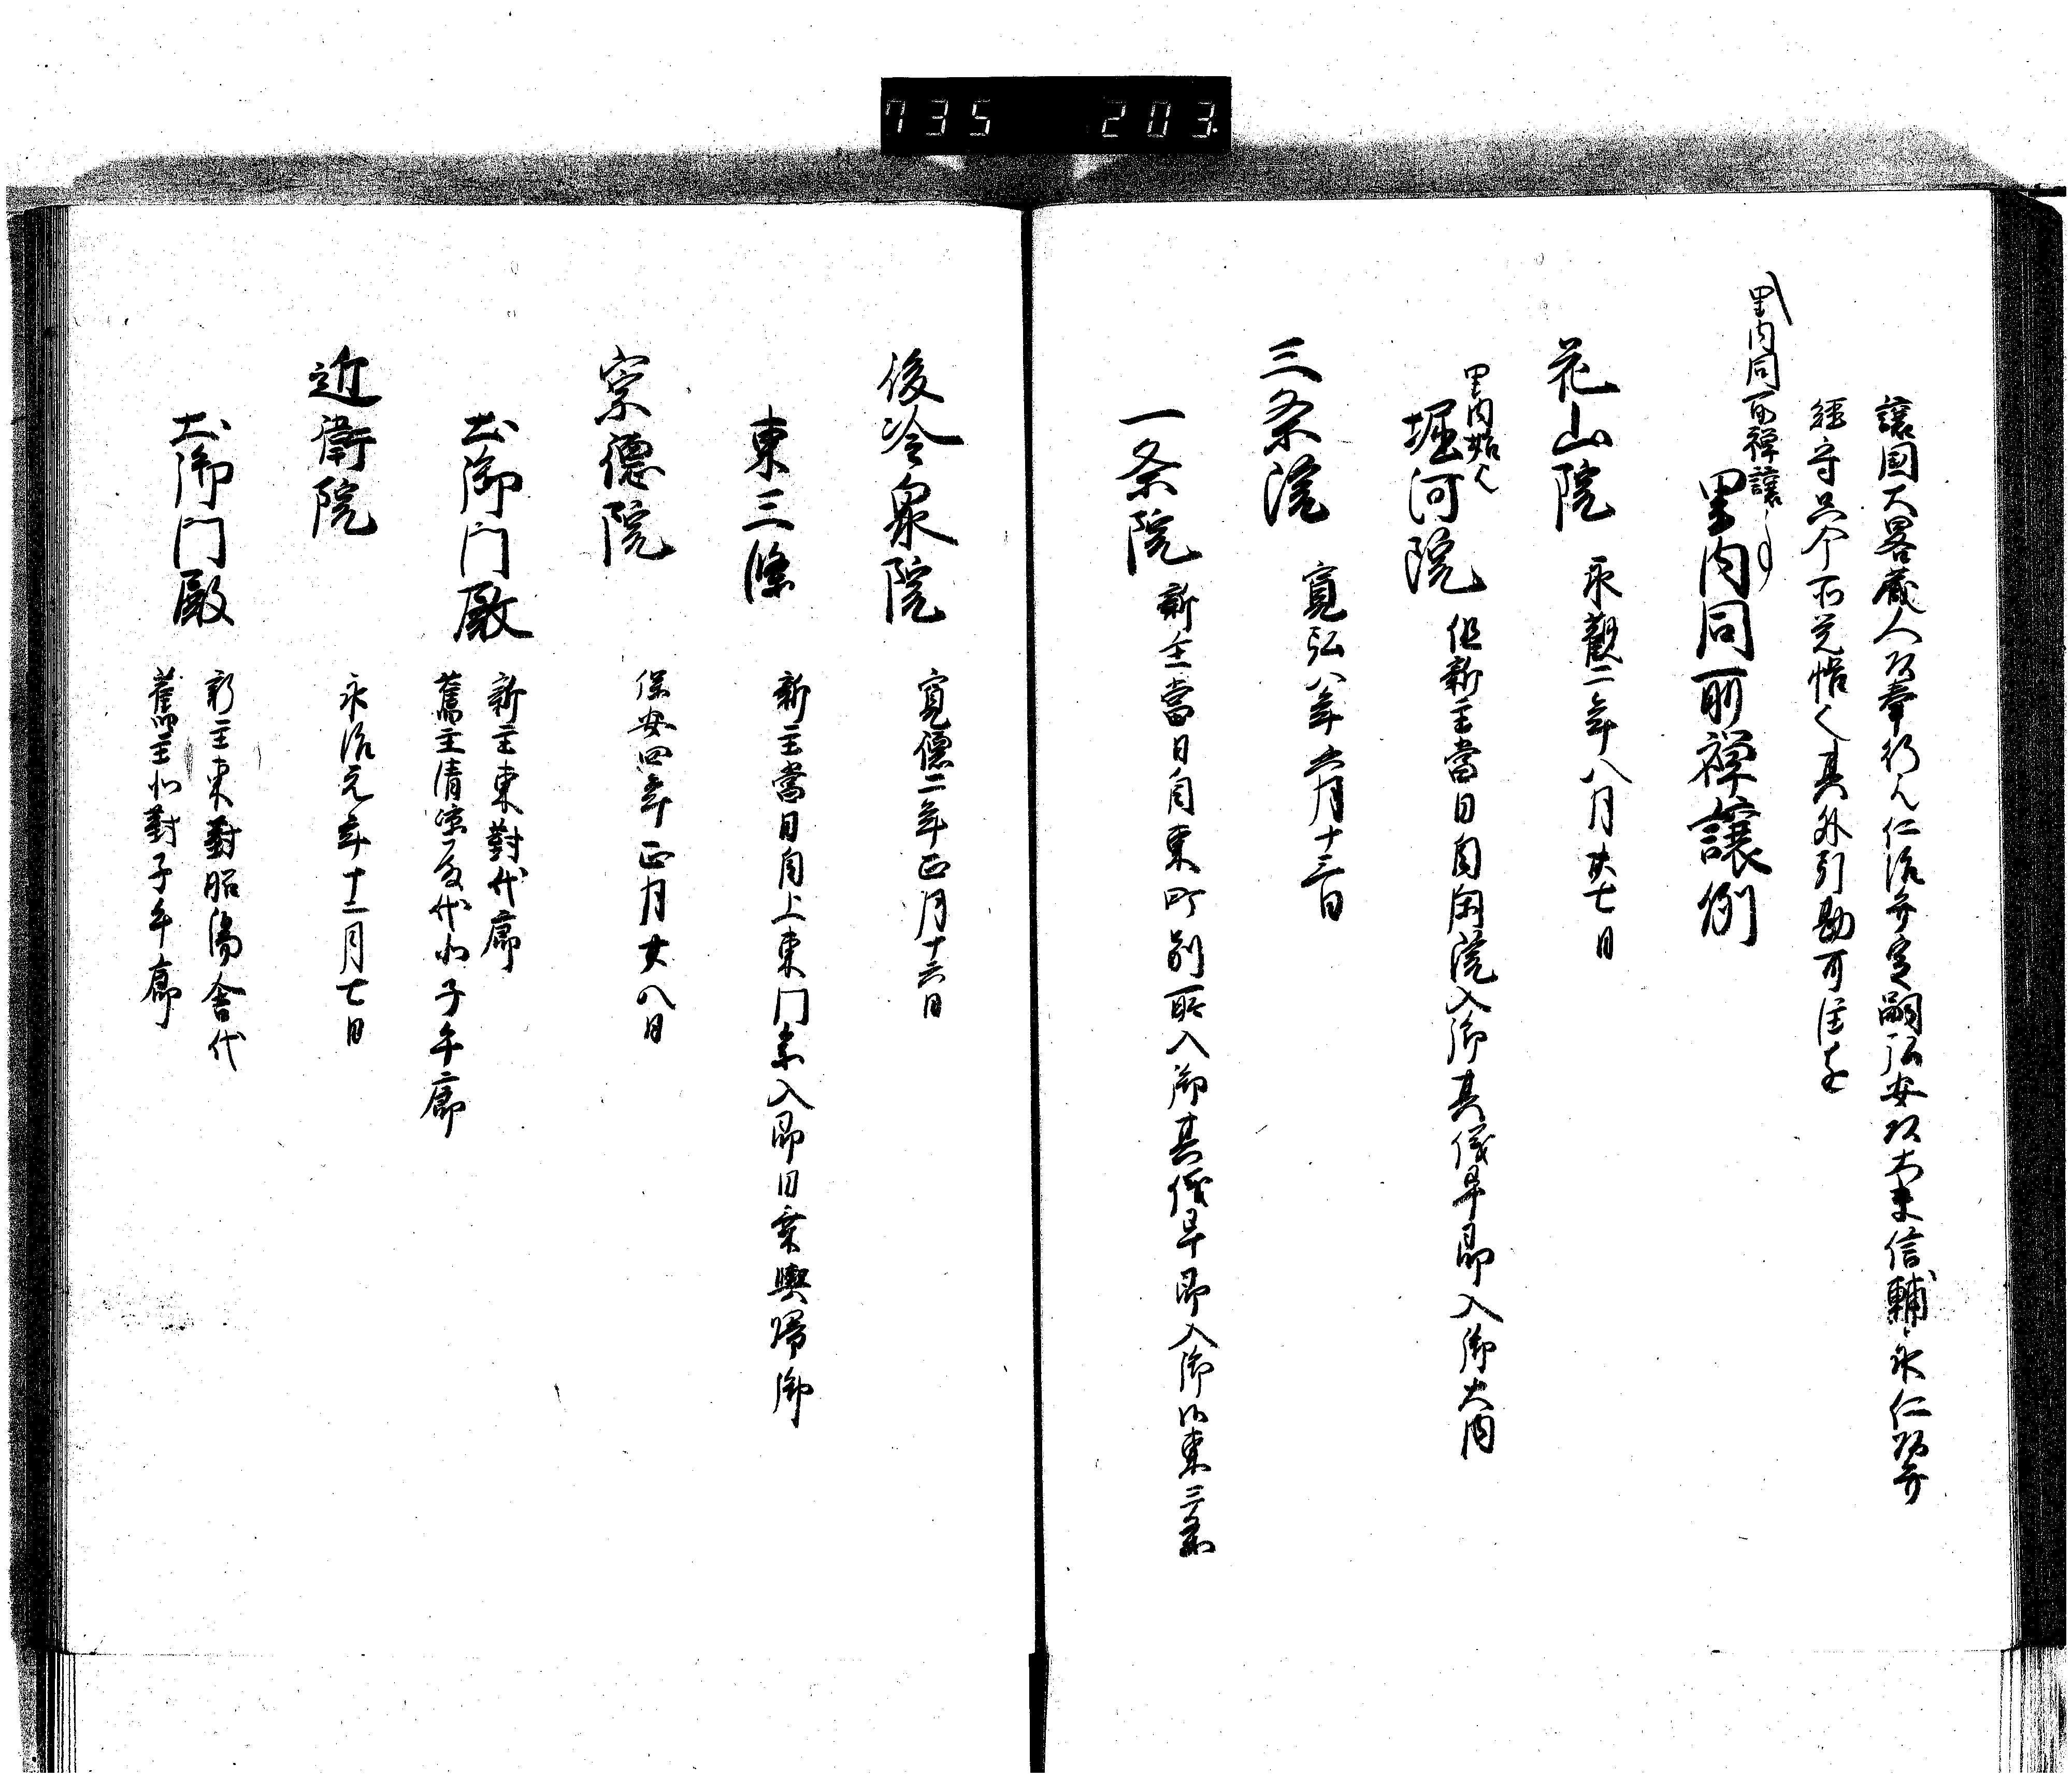 735 203
譲国大畧蔵人頭奉行之仁治弁定嗣弘安頭大東信輔永仁頭弁
経守
其外引勘可注之
里内同所禅譲
里内同所禅譲例
花山院 永觀二年八月廿七日
里内始之
堀河院 但新主當日自閑院入御其儀早即入御大内
三条院 寛弘八年六月十三日
一条院 新主當日自東町別所入御其儀早即入御東三条
後冷泉院 寛德二年正月十六日
東三條 新主當日自上東門参入即日乗輿帰御
崇德院 保安四年正月廿八日
土御門殿 新主東對代廊
舊主清凉殿代北子午廊
近衛院 永治元年十二月七日
土御門殿 新主東對昭陽舎代
舊主北對子午廊